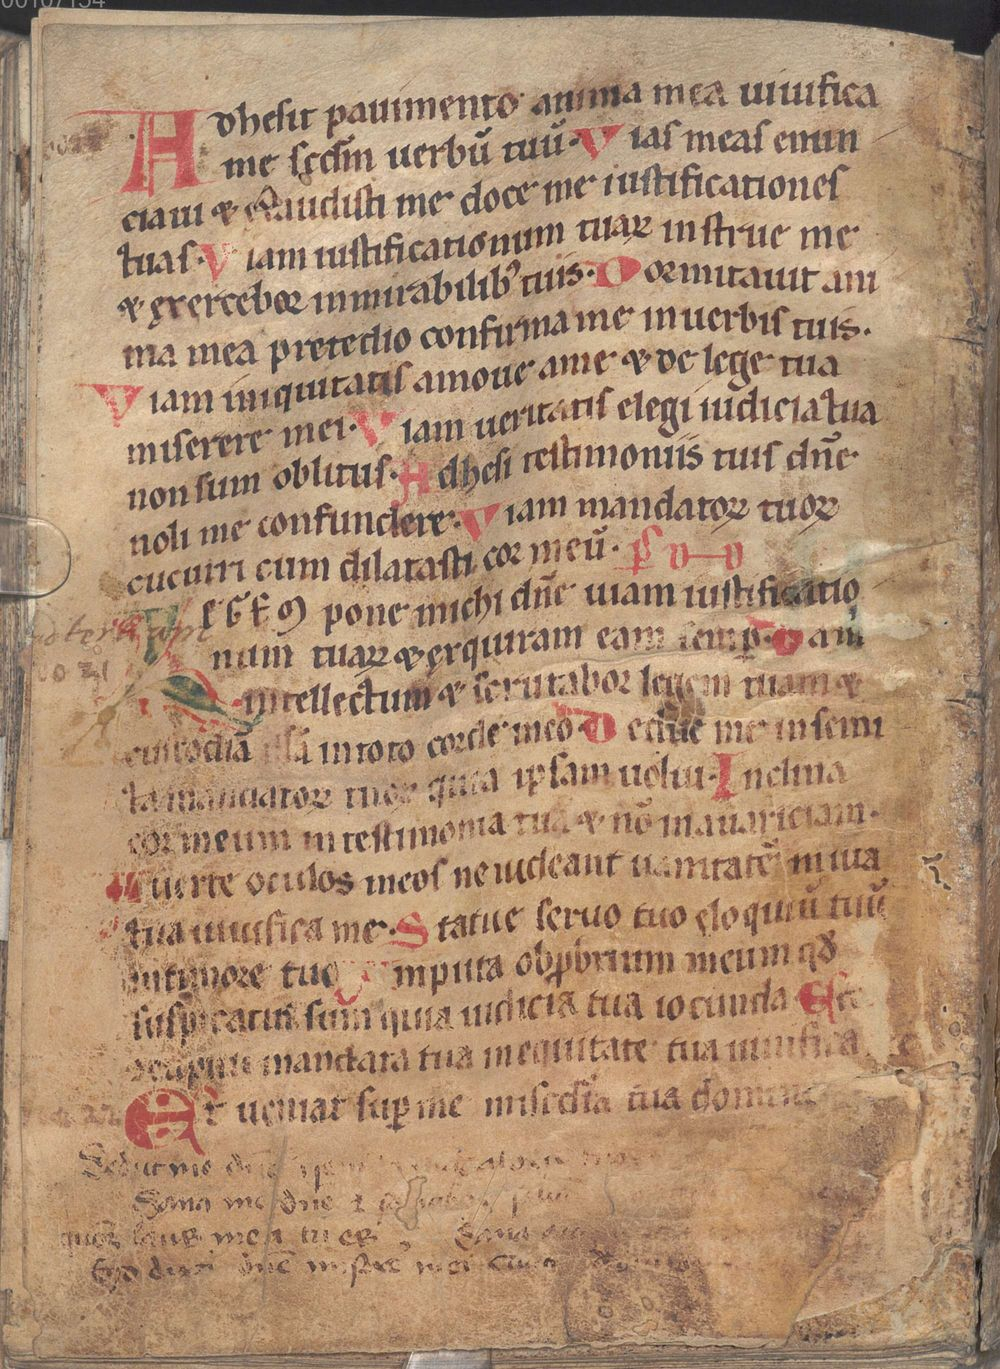 00107154
Adhesit pauimento anima mea uiuifica
me scdm uerbū tuū. Vias meas enun
ciaui & exaudisti me doce me iustificationes
tuas. Viam iustificationum tuaꝝ instrue me
& exercebor in mirabilibꝰ tuis. Dormitauit ani
ma mea pre tedio confirma me in uerbis tuis.
Viam iniquitatis amoue a me & de lege tua
miserere mei. Viam ueritatis elegi iudicia tua
non sum oblitus. Adhesi testimoniis tuis dn̄e
noli me confundere. Viam mandatoꝝ tuoꝝ
cucurri cum dilatasti cor meū. p̄s
LEGEM pone michi dn̄e uiam iustificatio
num tuaꝝ & exquiram eam semꝑ. Da m
intellectum & scrutabor legem tuam &
custodiā illā in toto corde meo. Deduc me in semi
ta mandatoꝝ tuoꝝ quia ipsam uolui. Inclina
cor meum in testimonia tua & nō in auariciam.
Auerte oculos meos ne uideant uanitatē in uia
tua uiuifica me. Statue seruo tuo eloquiū tuū
in timore tuo. Amputa obꝓbrium meum qd̄
suspicatus sum quia iudicia tua iocunda. Ecce
concupiui mandata tua in equitate tua uiuifica
Et ueniat suꝑ me misc̄dia tua domine
Deduc me dn̄e
Sana me dn̄e &
laus mea tu es
Ego dixi dn̄e miserere mei